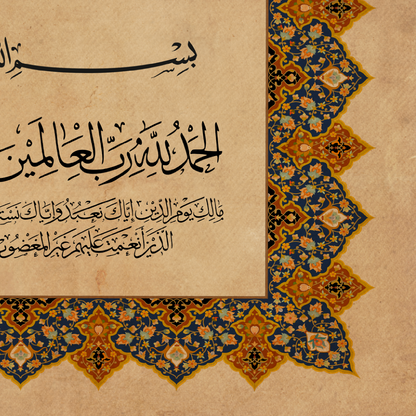 بسم
الحمد لله رب العالمين
مالك يوم الدين إياك نعبد وإياك
الذين أنعمت عليهم غير المغضوب